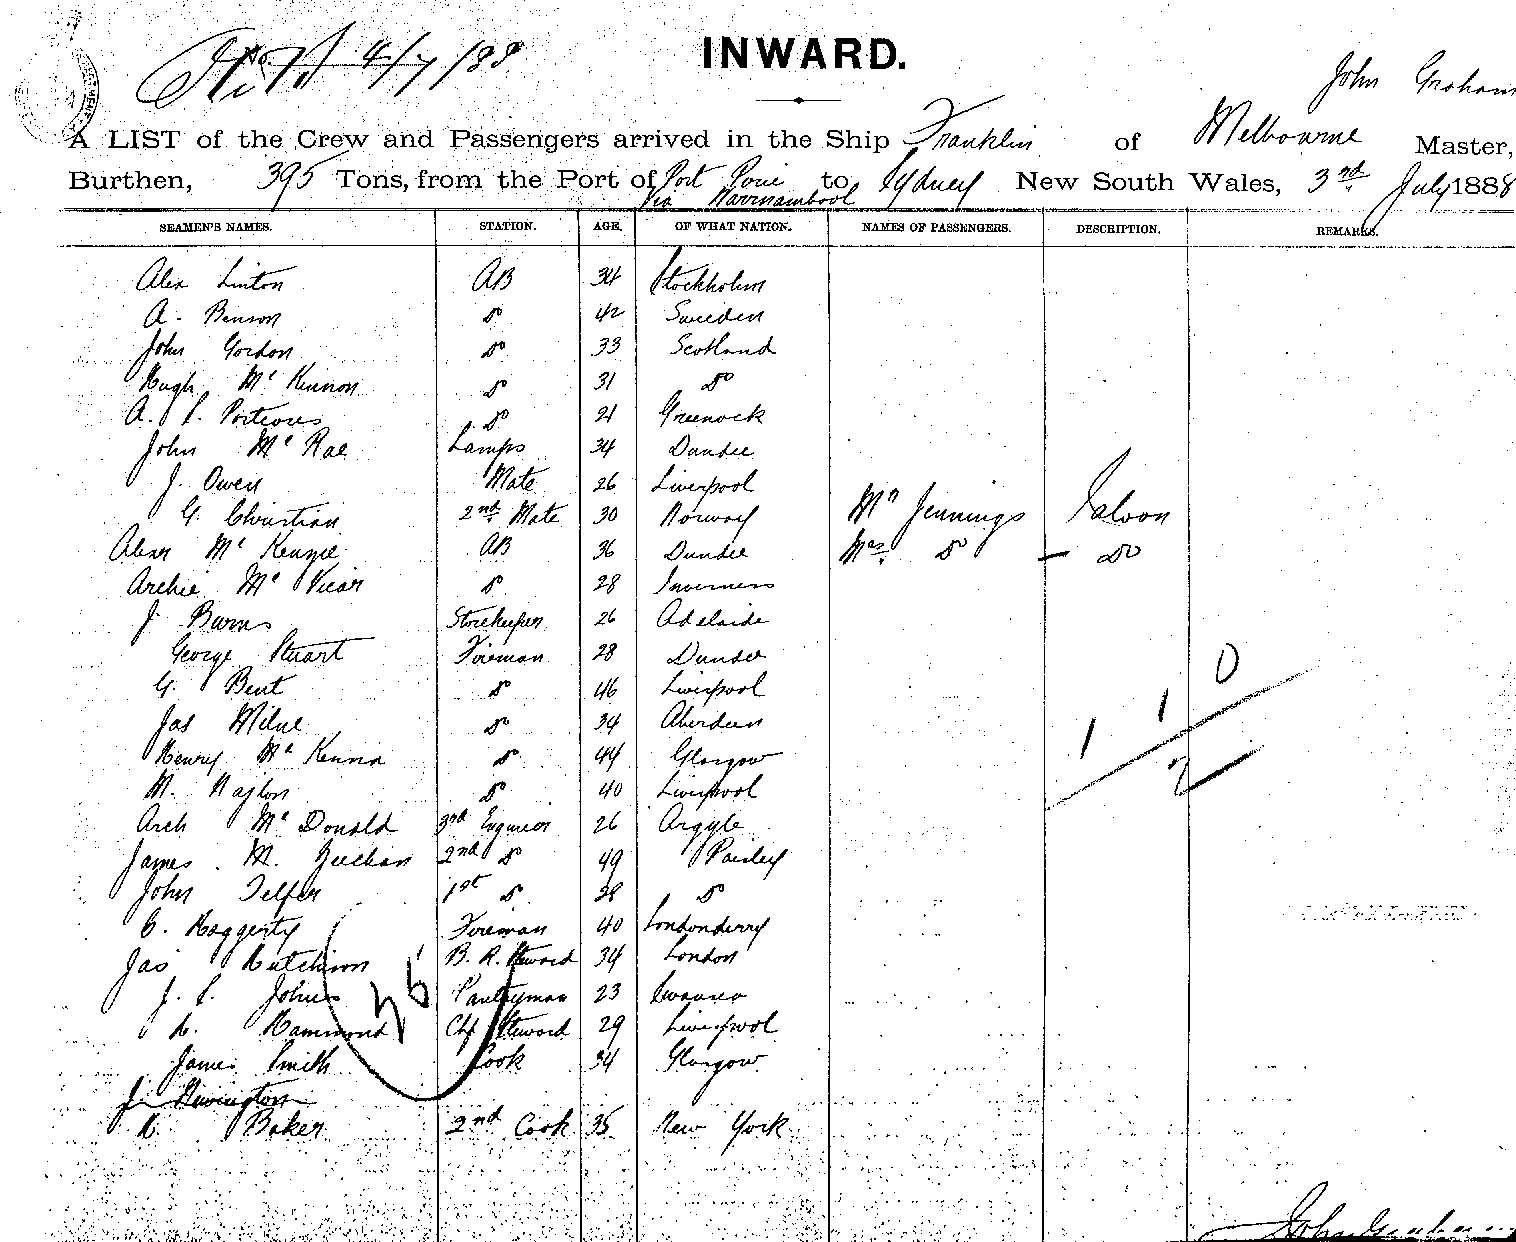 4/7/88
INWARD.
John Graham
A LIST of the Crew and Passengers arrived in the Ship Franklin of Melbourne Master,
Burthen, 395 Tons, from the Port of Port Pirie to Sydney New South Wales, 3rd July 1888
Via Warrnambool
SEAMEN'S NAMES. STATION. AGE. OF WHAT NATION. NAMES OF PASSENGERS. DESCRIPTION. REMARKS.
Alex Linton AB 34 Stockholm
A. Benson Do 42 Sweden
John Gordon Do 33 Scotland
Hugh Mc Kinnon Do 31 Do
A. S. Porteous Do 21 Greenock
John Mc Rae Lamps 34 Dundee
J. Owen Mate 26 Liverpool
G. Christian 2nd Mate 30 Norway Mr Jennings Saloon
Alexr Mc Kenzie AB 36 Dundee Mrs Do — Do
Archie Mc Vicar Do 28 Inverness
J. Burns Storekeeper 26 Adelaide
George Stuart Fireman 28 Dundee
G. Bent Do 46 Liverpool
Jas Milne Do 34 Aberdeen
Henry Mc Kenna Do 44 Glasgow
M. Naylon Do 40 Liverpool
Arch Mc Donald 3rd Engineer 26 Argyle
James M. Buchan 2nd Do 49 Paisley
John Telfer 1st Do 28 Do
C. Haggerty Fireman 40 Londonderry
Jas Hutchison B. R. Steward 34 London
J. S. Johns Pantryman 23 Swansea
H. Hammond Chf Steward 29 Liverpool
James Smith Cook 34 Glasgow
J. Hevington
H. Baker 2nd Cook 35 New York
1 1 0
2
John Graham